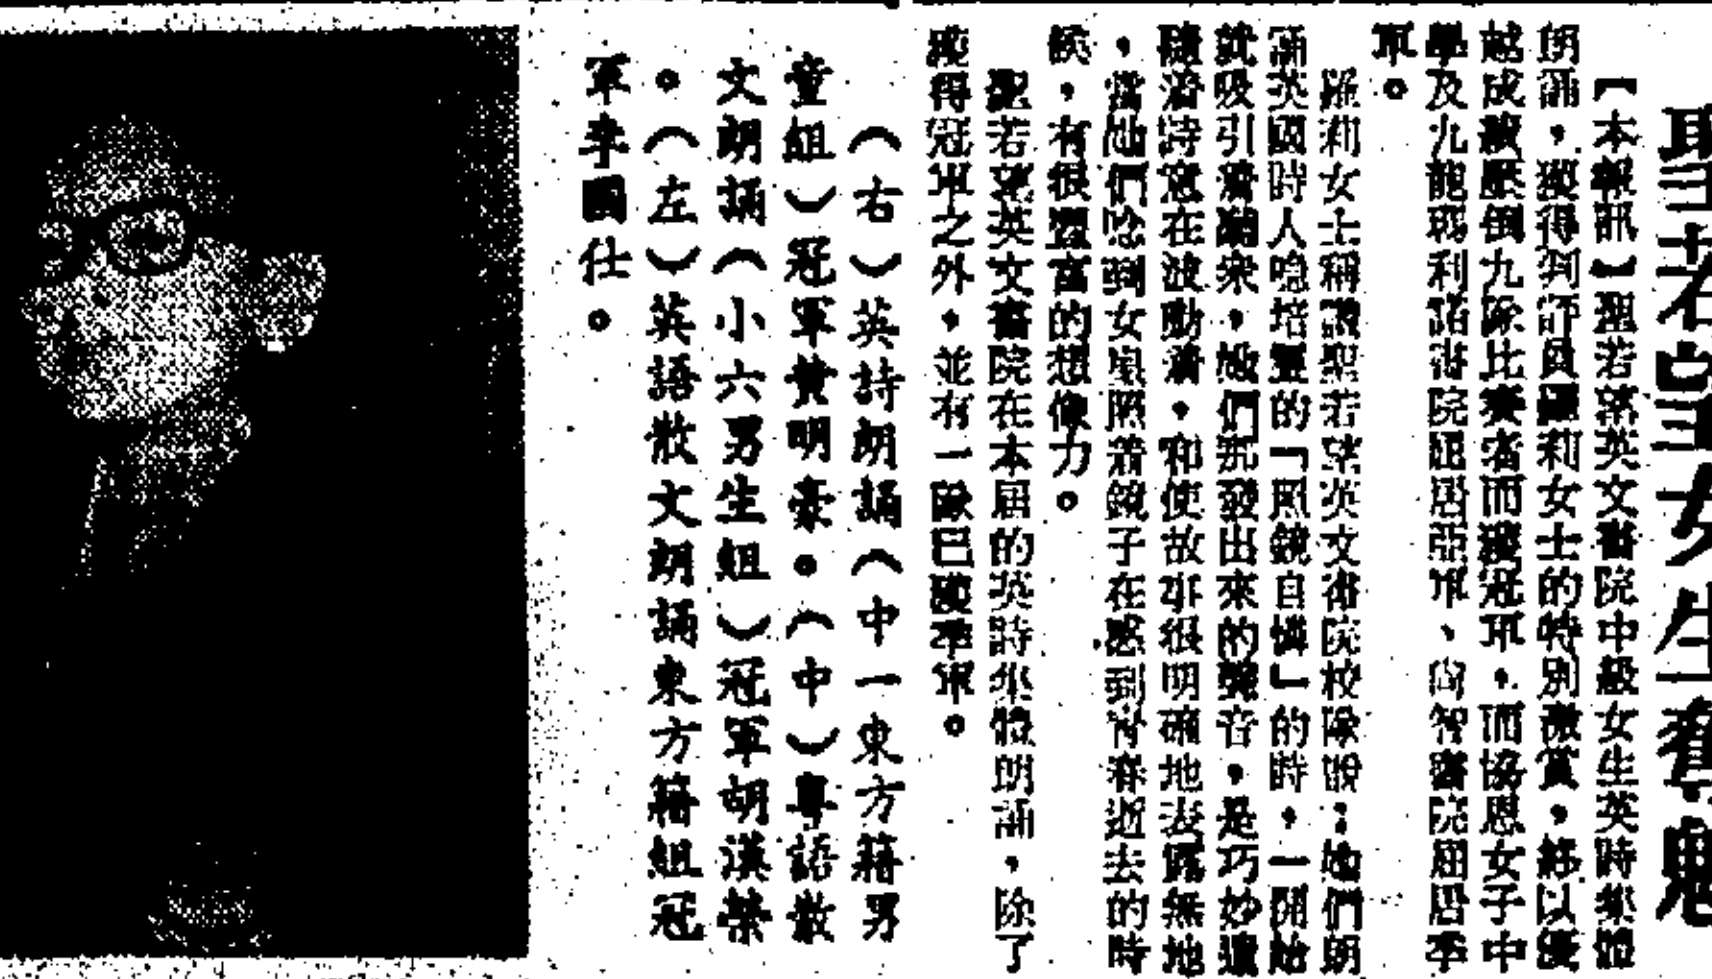 聖若望女生奪魁
【本報訊】聖若望英文書院中級女生英詩集體
朗誦,獲得判評員羅莉女士的特別激賞,終以優
越成績壓倒九隊比賽者而獲冠軍,而協恩女子中
學及九龍瑪利諾書院屈居亞軍、尚智書院屈居季
軍。
羅莉女士稱讚聖若望英文書院校隊說:她們朗
誦英國時人喰培靈的「照鏡自憐」的時,一開始
就吸引着聽衆,她們那發出來的聲音,是巧妙
隨着詩意在波動着,和使故事很明確地表露無地
,當她們唸到女皇照着鏡子在感到青春逝去的時
候,有很豐富的想像力。
聖若望英文書院在本屆的英詩集體朗誦,除了
獲得冠軍之外,並有一隊已獲季軍。
(右)英詩朗誦(中一東方籍男
童組)冠軍黃明豪。(中)粵語散
文朗誦(小六男生組)冠軍胡漢榮
。(左)英語散文朗誦東方籍組冠
軍李國仕。